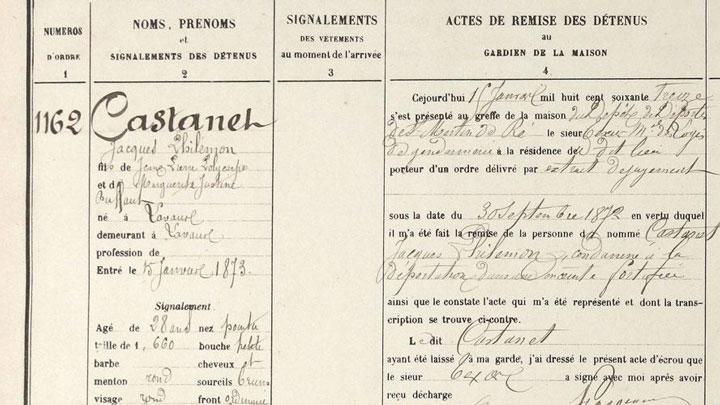 NUMEROS
D'ORDRE
1
NOMS, PRENOMS
et
SIGNALEMENTS DES DÉTENUS
2
SIGNALEMENTS
DES VÊTEMENTS
au moment de l'arrivée
3
ACTES DE REMISE DES DÉTENUS
au
GARDIEN DE LA MAISON
4
1162
Castanet
Jacques Philémon
fils de Jean Pierre
et d Marguerite Justine
né à Lavaur
demeurant à Lavaur
profession de
Entré le 15 Janvier 1873.
Signalement
Agé de 28 ans nez pointu
taille de 1, 660 bouche petite
barbe cheveux et
menton rond sourcils bruns
visage rond front
Cejourd'hui 15 Janvier mil huit cent soixante treize
s'est présenté au greffe de la maison du Dépôt de
St Martin de Ré le sieur
de gendarmerie à la résidence du dit lieu
porteur d'un ordre délivré par extrait de jugement
sous la date du 30 Septembre 1872 en vertu duquel
il m'a été fait la remise de la personne d nommé Castanet
Jacques Philemon, condamné à la
Déportation dans une enceinte fortifiée
ainsi que le constate l'acte qui m'a été représenté et dont la trans-
cription se trouve ci-contre.
Le dit Castanet
ayant été laissé à ma garde, j'ai dressé le présent acte d'écrou que
le sieur a signé avec moi après avoir
reçu décharge